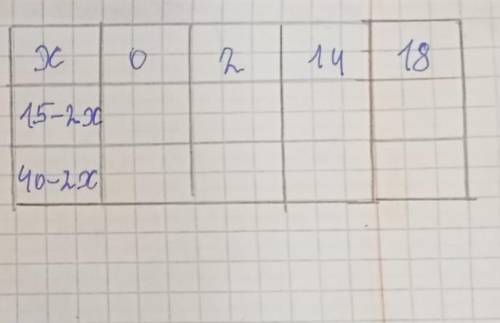 x 0 2 14 18
15-2x
40-2x